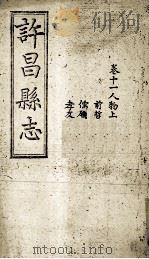 許昌縣志
卷十一人物上
前哲
儒碩
孝友